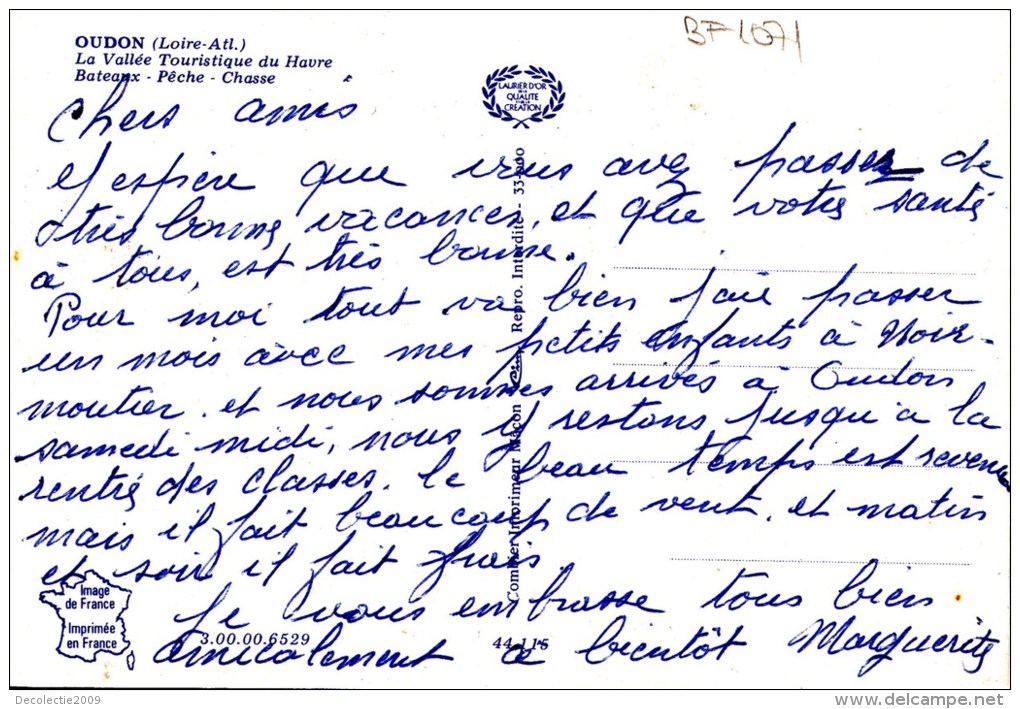 BF-1071
OUDON (Loire-Atl.)
La Vallée Touristique du Havre
Bateaux - Pêche - Chasse
LAURIER D'OR
DE LA
QUALITÉ
CRÉATION
Chers amis
J'espère que vous avez passez de
très bonne vacances, et que votre santé
à tous, est très bonne.
Pour moi tout va bien j'aie passer
un mois avec mes petits enfants à Noir-
moutier. et nous sommes arrivés à Oudon
samedi midi, nous y restons jusqu'à la
rentré des classes. le beau temps est revenu
mais il fait beaucoup de vent. et matin
et soir il fait frais.
Je vous embrasse tous bien
amicalement a bientôt Marguerite
Image
de France
Imprimée
en France
3.00.00.6529
44.115
Combier Imprimeur Mâcon
Repro. Interdite -
Decolectie2009
www.delcampe.net